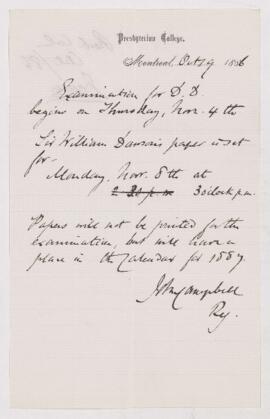 Presbyterian College,
Montreal, Oct 19 1886
Examination for D.D.
begins on Thursday, Nov. 4th
Sir William Dawson's paper is set
for
Monday, Nov. 8th at
2.30 p.m 3 o'clock p.m.
Papers will not be printed for the
examination, but will have a
place in the Calendar for 1887.
John Campbell
Rg.